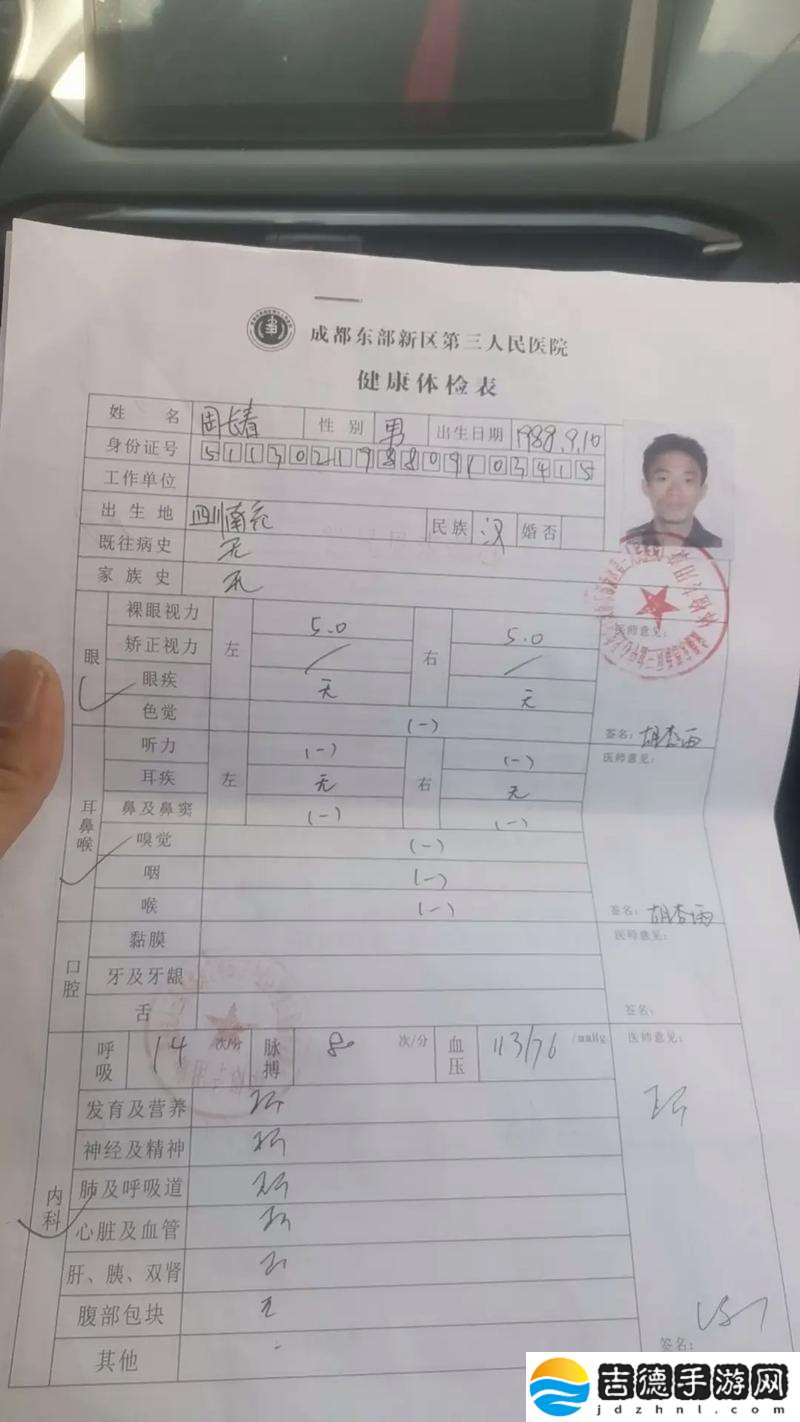 成都东部新区第三人民医院
健康体检表
姓 名 周长春 性 别 男 出生日期 1988.9.10
身份证号 511302198809103415
工作单位
出 生 地 四川南充 民族 汉 婚否
既往病史 无
家 族 史 无
眼 裸眼视力 左 5.0 右 5.0 医师意见:
矫正视力 / /
眼疾 无 无
色觉 (-) 签名: 胡杏雨
耳鼻喉 听力 左 (-) 右 (-) 医师意见:
耳疾 无 无
鼻及鼻窦 (-) (-)
嗅觉 (-)
咽 (-)
喉 (-) 签名: 胡杏雨
口腔 黏膜 医师意见:
牙及牙龈
舌 签名:
内科 呼吸 14 次/分 脉搏 80 次/分 血压 113/76 /mmHg 医师意见:
发育及营养
神经及精神
肺及呼吸道
心脏及血管
肝、胰、双肾
腹部包块 无
其他 - 签名:
吉德手游网
jdzhnl.com